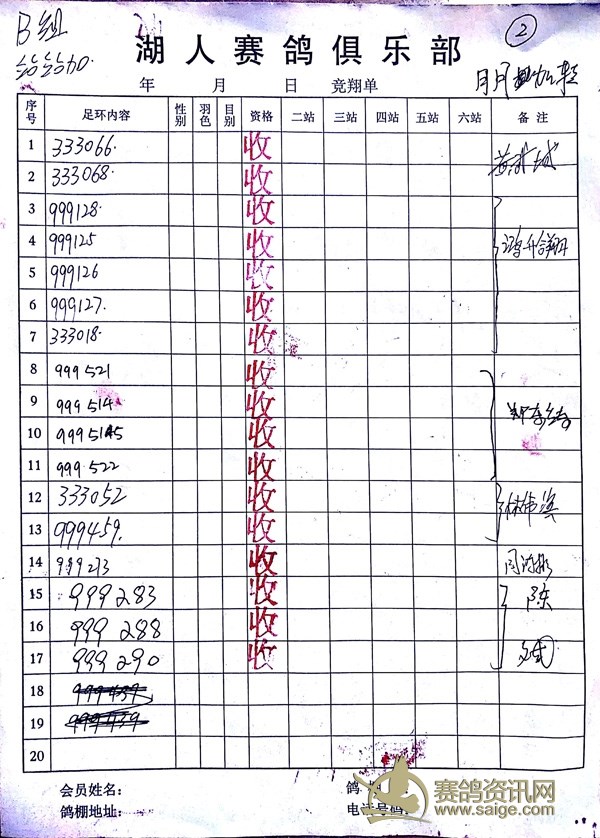 B组
②
湖人赛鸽俱乐部
年 月 日 竞翔单
序号 足环内容 性别 羽色 目别 资格 二站 三站 四站 五站 六站 备注
1 333066. 收
2 333068. 收
3 999128. 收
4 999125 收
5 999126 收
6 999127. 收 鸿升翔
7 333018. 收
8 999521 收
9 999514 收
10 收
11 999522 收
12 333052 收 林伟滨
13 999459. 收
14 999273 收
15 999283 收 陈
16 999288 收
17 999290 收
18
19
20
会员姓名: 鸽
鸽棚地址: 电话号码:
赛鸽资讯网
www.saige.com